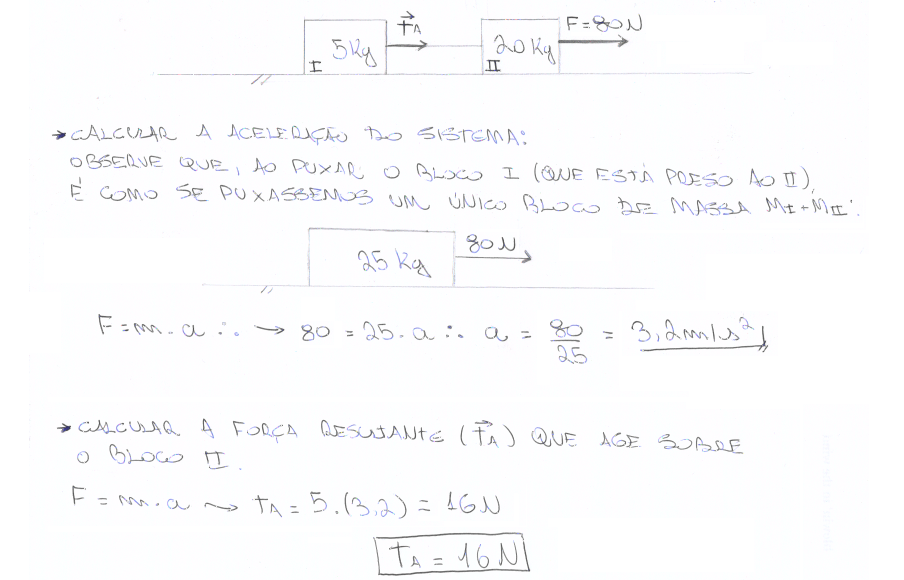 5Kg I tA 20Kg II F=80N
→ CALCULAR A ACELERAÇÃO DO SISTEMA:
OBSERVE QUE, AO PUXAR O BLOCO I (QUE ESTÁ PRESO AO II),
É COMO SE PUXASSEMOS UM ÚNICO BLOCO DE MASSA MI+MII.
25 Kg 80N
F=m.a ∴ → 80 = 25.a ∴ a = 80/25 = 3,2m/s²
→ CALCULAR A FORÇA RESULTANTE (tA) QUE AGE SOBRE
O BLOCO II.
F = m.a ⤳ tA = 5.(3,2) = 16N
tA = 16N